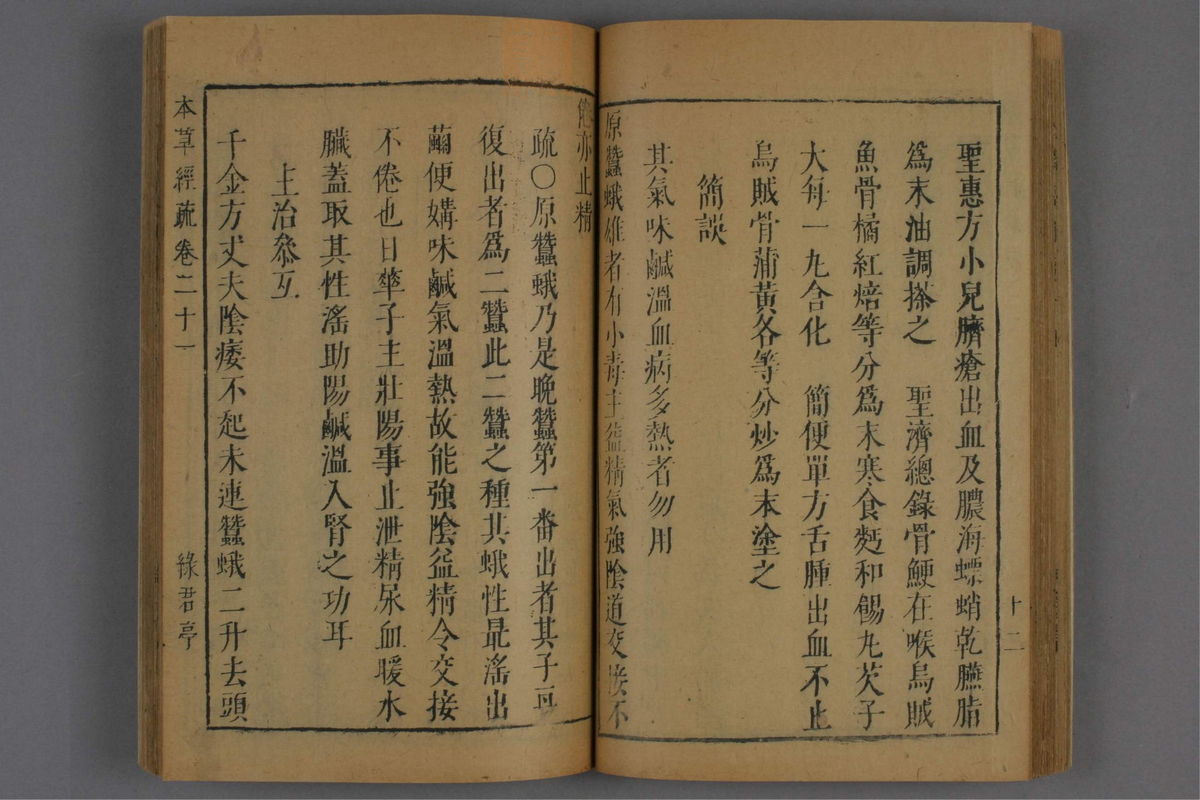 十二
聖惠方小兒臍瘡出血及膿海螵蛸乾臙脂
爲末油調搽之　聖濟總錄骨鯁在喉烏賊
魚骨橘紅焙等分爲末寒食麪和餳丸芡子
大每一丸含化　簡便單方舌腫出血不止
烏賊骨蒲黃各等分炒爲末塗之
簡誤
其氣味鹹溫血病多熱者勿用
原蠶蛾雄者有小毒主益精氣強陰道交接不
倦亦止精
疏○原蠶蛾乃是晚蠶第一番出者其子再
復出者爲二蠶此二蠶之種其蛾性最滛出
繭便媾味鹹氣溫熱故能強陰益精令交接
不倦也日華子主壯陽事止泄精尿血暖水
臟葢取其性滛助陽鹹溫入腎之功耳
主治叅互
千金方丈夫陰痿不起未連蠶蛾二升去頭
本草經疏卷二十一
綠君亭